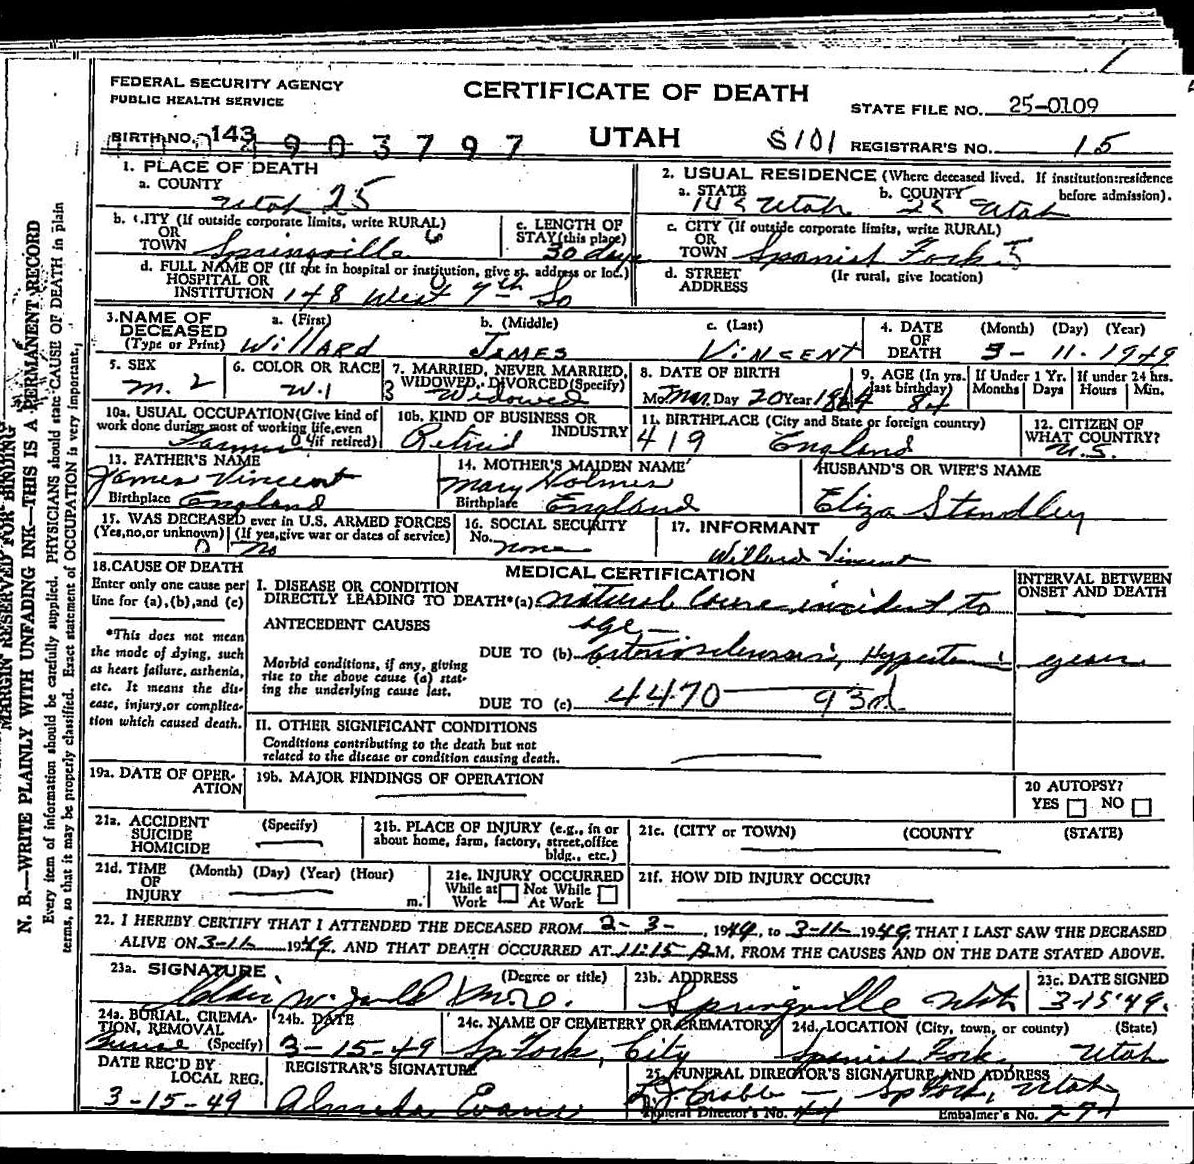 FEDERAL SECURITY AGENCY
PUBLIC HEALTH SERVICE
CERTIFICATE OF DEATH
STATE FILE NO. 25-0109
BIRTH NO. 143 903797
UTAH S101 REGISTRAR'S NO. 15
MARGIN RESERVED FOR BINDING
N. B.—WRITE PLAINLY WITH UNFADING INK—THIS IS A PERMANENT RECORD
Every item of information should be carefully supplied. PHYSICIANS should state CAUSE OF DEATH in plain
terms, so that it may be properly classified. Exact statement of OCCUPATION is very important.
1. PLACE OF DEATH
a. COUNTY
Utah 25
b. CITY (If outside corporate limits, write RURAL)
OR
TOWN Springville 6
c. LENGTH OF
STAY (this place)
30 days
d. FULL NAME OF (If not in hospital or institution, give st. address or loc.)
HOSPITAL OR
INSTITUTION 148 West 7th So
2. USUAL RESIDENCE (Where deceased lived. If institution: residence
before admission).
a. STATE Utah b. COUNTY 25 Utah
c. CITY (If outside corporate limits, write RURAL)
OR
TOWN Spanish Fork 5
d. STREET (If rural, give location)
ADDRESS
3. NAME OF DECEASED (Type or Print)
a. (First) b. (Middle) c. (Last)
Willard James Vincent
4. DATE OF DEATH (Month) (Day) (Year)
3-11-1949
5. SEX
M. 2
6. COLOR OR RACE
W. 1
7. MARRIED, NEVER MARRIED,
WIDOWED, DIVORCED (Specify)
3 Widowed
8. DATE OF BIRTH
Mo. Mar. Day 20 Year 1864
9. AGE (In yrs. last birthday) 84
If Under 1 Yr. Months Days
If under 24 hrs. Hours Min.
10a. USUAL OCCUPATION (Give kind of
work done during most of working life, even
if retired) Farmer
10b. KIND OF BUSINESS OR
INDUSTRY
Retired
11. BIRTHPLACE (City and State or foreign country)
419 England
12. CITIZEN OF
WHAT COUNTRY?
U.S.
13. FATHER'S NAME
James Vincent
Birthplace England
14. MOTHER'S MAIDEN NAME
Mary Holmes
Birthplace England
HUSBAND'S OR WIFE'S NAME
Eliza Standley
15. WAS DECEASED ever in U.S. ARMED FORCES
(Yes, no, or unknown) (If yes, give war or dates of service)
0 No
16. SOCIAL SECURITY
No. none
17. INFORMANT
Willard Vincent
18. CAUSE OF DEATH
Enter only one cause per
line for (a), (b), and (c)
*This does not mean
the mode of dying, such
as heart failure, asthenia,
etc. It means the dis-
ease, injury, or complica-
tion which caused death.
MEDICAL CERTIFICATION
INTERVAL BETWEEN
ONSET AND DEATH
I. DISEASE OR CONDITION
DIRECTLY LEADING TO DEATH*(a) natural course, incident to
age
ANTECEDENT CAUSES
DUE TO (b) Arteriosclerosis, Hypertension years
Morbid conditions, if any, giving
rise to the above cause (a) stat-
ing the underlying cause last.
DUE TO (c) 4470 93d
II. OTHER SIGNIFICANT CONDITIONS
Conditions contributing to the death but not
related to the disease or condition causing death.
19a. DATE OF OPER-
ATION
19b. MAJOR FINDINGS OF OPERATION
20 AUTOPSY?
YES NO
21a. ACCIDENT (Specify)
SUICIDE
HOMICIDE
21b. PLACE OF INJURY (e.g., in or
about home, farm, factory, street, office
bldg., etc.)
21c. (CITY or TOWN) (COUNTY (STATE)
21d. TIME (Month) (Day) (Year) (Hour)
OF
INJURY m.
21e. INJURY OCCURRED
While at Work Not While At Work
21f. HOW DID INJURY OCCUR?
22. I HEREBY CERTIFY THAT I ATTENDED THE DECEASED FROM 2-3-, 1949, to 3-11-1949 THAT I LAST SAW THE DECEASED
ALIVE ON 3-11-1949. AND THAT DEATH OCCURRED AT 11:15 M, FROM THE CAUSES AND ON THE DATE STATED ABOVE.
23a. SIGNATURE (Degree or title)
W.
23b. ADDRESS
Springville Utah
23c. DATE SIGNED
3-15-49.
24a. BURIAL, CREMA-
TION, REMOVAL
Burial (Specify)
24b. DATE
3-15-49
24c. NAME OF CEMETERY OR CREMATORY
Sp Fork, City
24d. LOCATION (City, town, or county) (State)
Spanish Fork Utah
DATE REC'D BY
LOCAL REG.
3-15-49
REGISTRAR'S SIGNATURE
Evans
25. FUNERAL DIRECTOR'S SIGNATURE AND ADDRESS
Sp Fork, Utah
Funeral Director's No. 44 Embalmer's No.